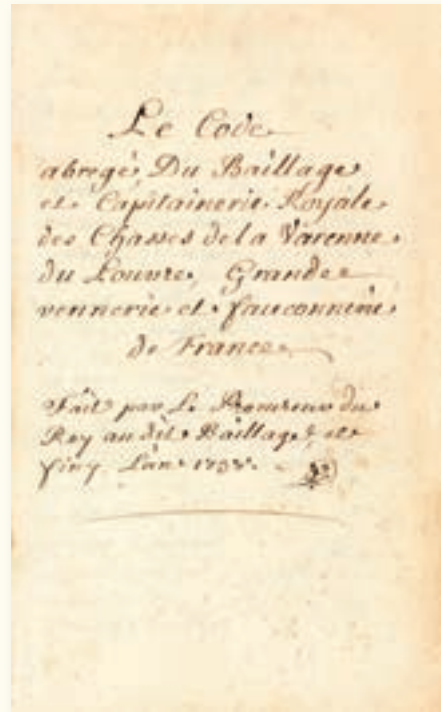 Le Code
abregé Du Baillage
et Capitainerie Royale
des Chasses de la Varenne
du Louvre, Grande
vennerie et fauconnerie
de France
Fait par Le Procureur du
Roy au dit Baillage, et
finy L'an